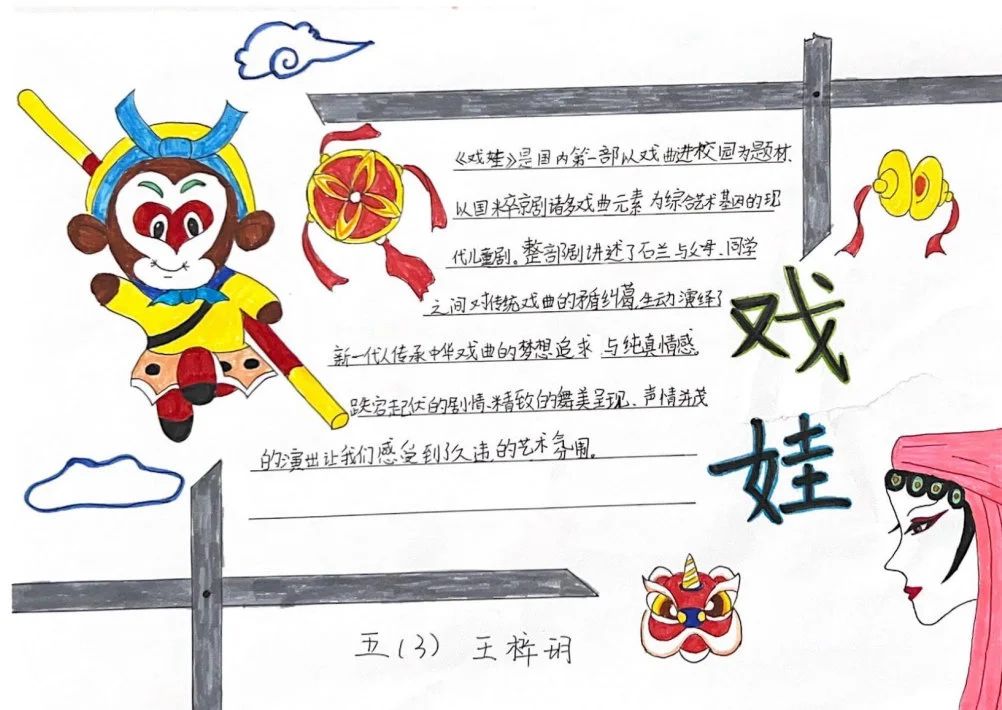 《戏娃》是国内第一部以戏曲进校园为题材、
以国粹京剧诸多戏曲元素为综合艺术基因的现
代儿童剧。整部剧讲述了石兰与父母、同学
之间对传统戏曲的矛盾纠葛,生动演绎了
新一代人传承中华戏曲的梦想追求与纯真情感,
跌宕起伏的剧情、精致的舞美呈现、声情并茂
的演出让我们感受到了久违的艺术氛围。
戏
娃
五(3) 王梓玥